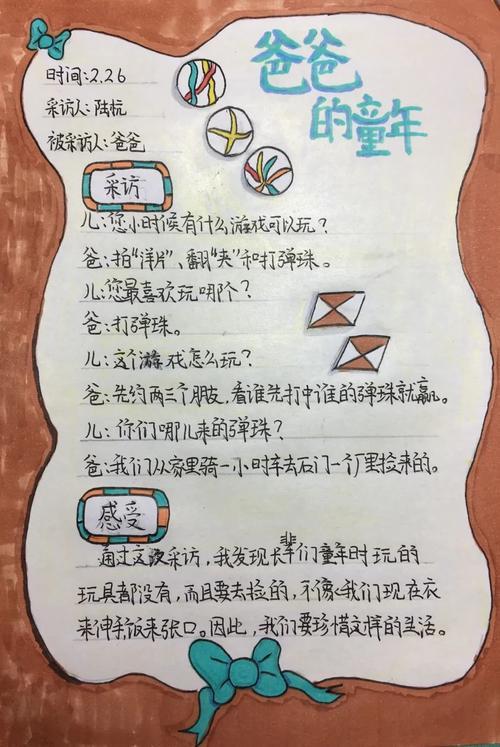 爸爸
的童年
时间:2.26
采访人:陆杭
被采访人:爸爸
采访
儿:您小时候有什么游戏可以玩?
爸:拍“洋片”、翻“夹”和打弹珠。
儿:您最喜欢玩哪个?
爸:打弹珠。
儿:这个游戏怎么玩?
爸:先约两三个朋友,看谁先打中谁的弹珠就赢。
儿:你们哪儿来的弹珠?
爸:我们从家里骑一小时车去石门一厂里捡来的。
感受
通过这次采访,我发现长辈们童年时玩的
玩具都没有,而且要去捡的,不像我们现在衣
来伸手饭来张口。因此,我们要珍惜这样的生活。